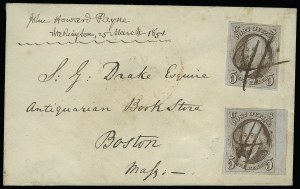 John Howard Payne
Washington, 25 March 1851.
S. G. Drake Esquire
Antiquarian Book Store
Boston
Mass:
POST OFFICE
5 5
POST OFFICE
5 5